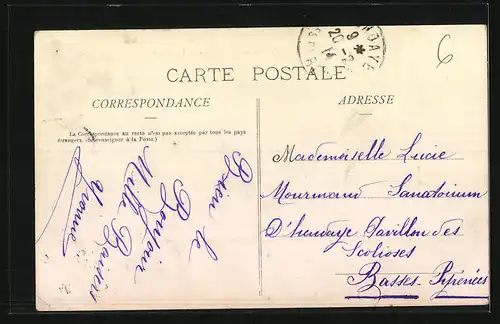 6
NDAYE
9 *
20 - 2
14
CARTE POSTALE
CORRESPONDANCE
ADRESSE
La Correspondance au recto n'est pas acceptée par tous les pays
étrangers. (Se renseigner à la Poste.)
Bien le
Bonjour
Mille Baisers
Yvonne
Mademoiselle Lucie
Mourmand Sanatorium
D'hendaye Pavillon des
Scolioses
Basses-Pyrénées